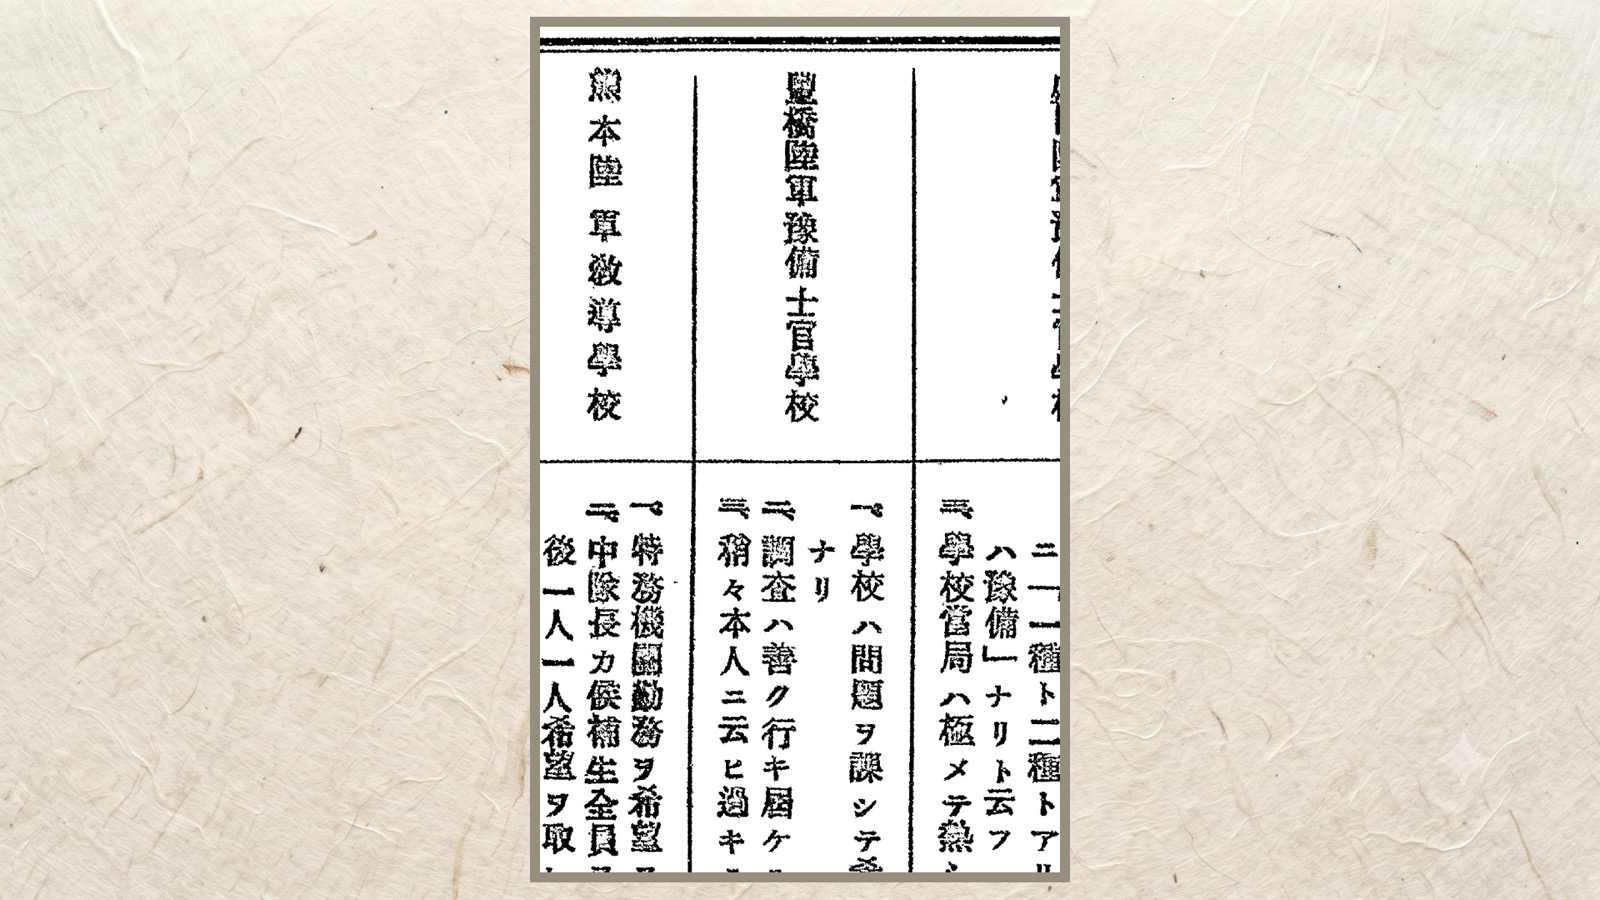 ニ「一種ト二種トアリ
ハ豫備」ナリト云フ
三、學校當局ハ極メテ熱
豐橋陸軍豫備士官學校
一、學校ハ問題ヲ課シテ
ナリ
二、調査ハ善ク行キ屆ケ
三、稍々本人ニ云ヒ過キ
熊本陸軍敎導學校
一、特務機關勤務ヲ希望
二、中隊長カ候補生全員
後一人一人希望ヲ取